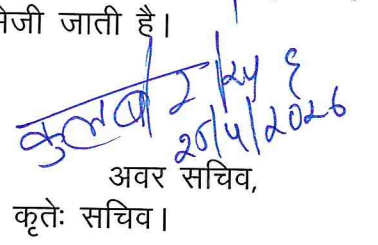 जी जाती है।
कुलबीर
2026
अवर सचिव,
कृतेः सचिव।